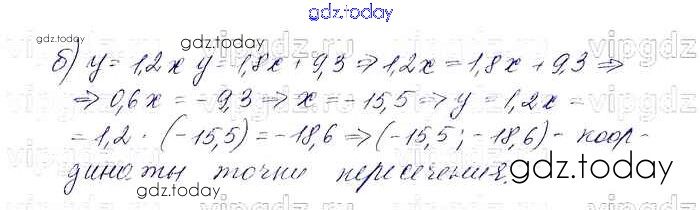 gdz.today
gdz.today
б) y = 1,2x y = 1,8x + 9,3 ⇒ 1,2x = 1,8x + 9,3 ⇒
⇒ 0,6x = -9,3 ⇒ x = -15,5 ⇒ y = 1,2x =
= 1,2 · (-15,5) = -18,6 ⇒ (-15,5; -18,6) - коор-
gdz.today
gdz.today
динаты точки пересечения.
gdz.today
gdz.today